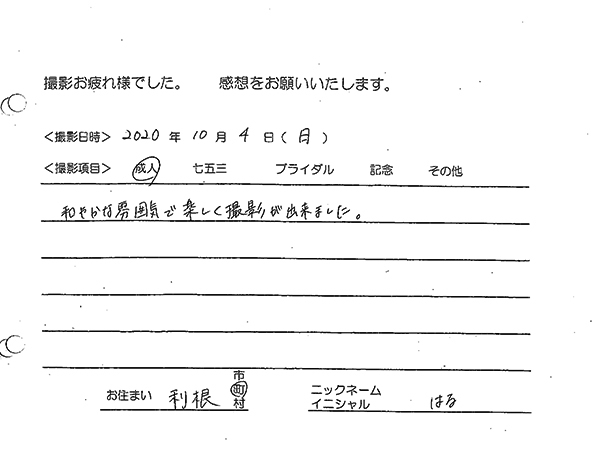 撮影お疲れ様でした。　感想をお願いいたします。
＜撮影日時＞ 2020 年 10 月 4 日（日）
＜撮影項目＞ 成人　七五三　ブライダル　記念　その他
和やかな雰囲気で楽しく撮影が出来ました。
お住まい 利根 市町村　ニックネーム イニシャル はる